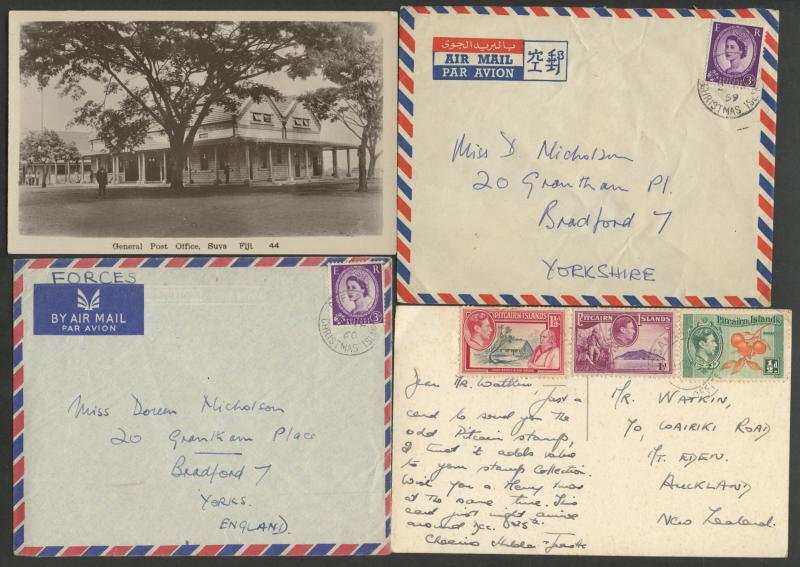 General Post Office, Suva Fiji. 44
بالبريد الجوى
AIR MAIL
PAR AVION
空郵
E R
3D
59
CHRISTMAS ISL
Miss D. Nicholson
20 Grantham Pl.
Bradford 7
YORKSHIRE
FORCES
BY AIR MAIL
PAR AVION
E R
3D
60
CHRISTMAS IS
Miss Doreen Nicholson
20 Grantham Place
Bradford 7
YORKS.
ENGLAND.
PITCAIRN ISLANDS
1½d
PITCAIRN ISLANDS
1d
Pitcairn Islands
½d
Dear Mr. Watkin, Just a
card to send you the
odd Pitcairn stamp,
I trust it adds value
to your stamp collection.
Wish you a Merry Xmas
at the same time. This
card just might arrive
around Dec. 25th.
Cheerio Hilda
MR. WATKIN,
70, WAIRIKI ROAD
MT. EDEN.
AUCKLAND
New Zealand.